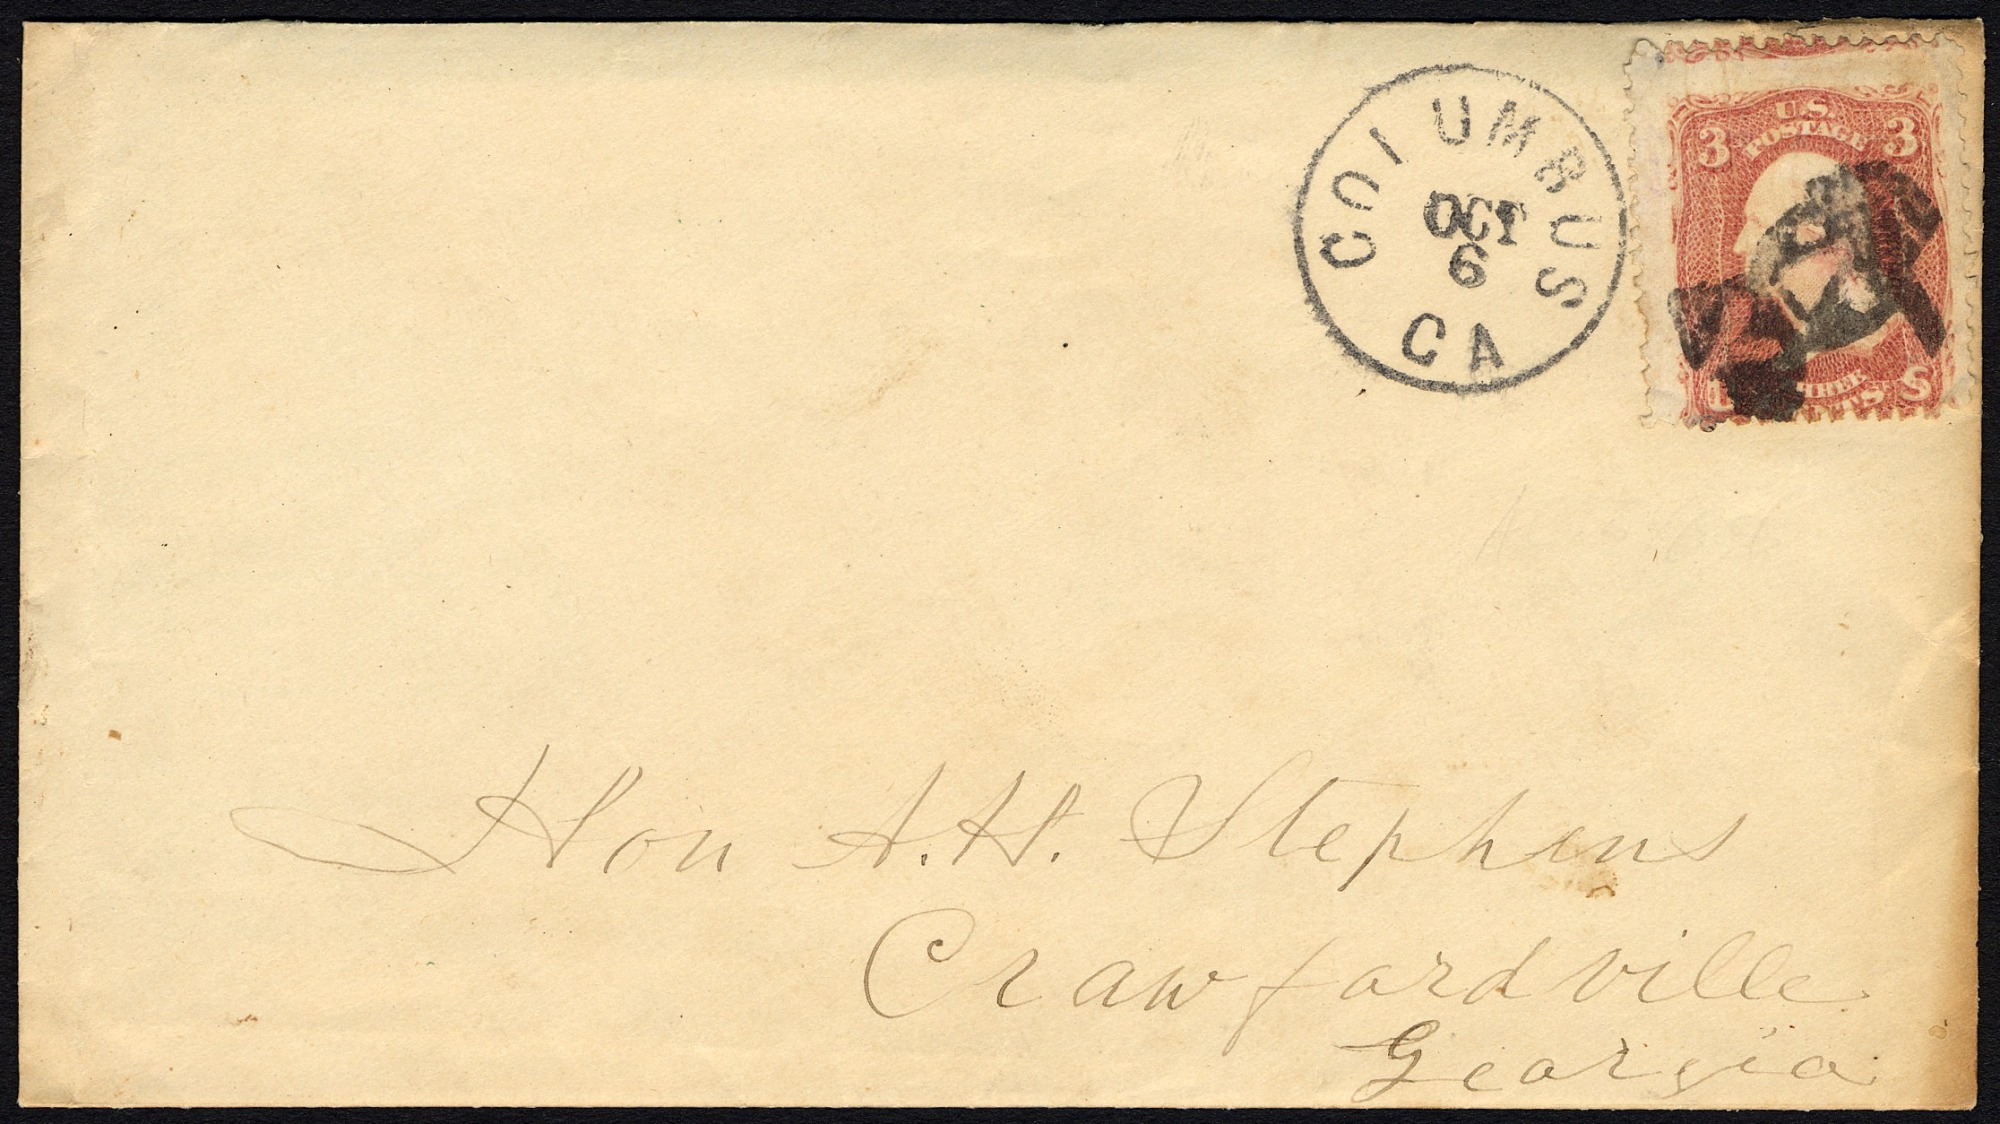 COLUMBUS
OCT
6
GA
U.S.
POSTAGE
3 3
S
Hon A. H. Stephens
Crawfordville
Georgia